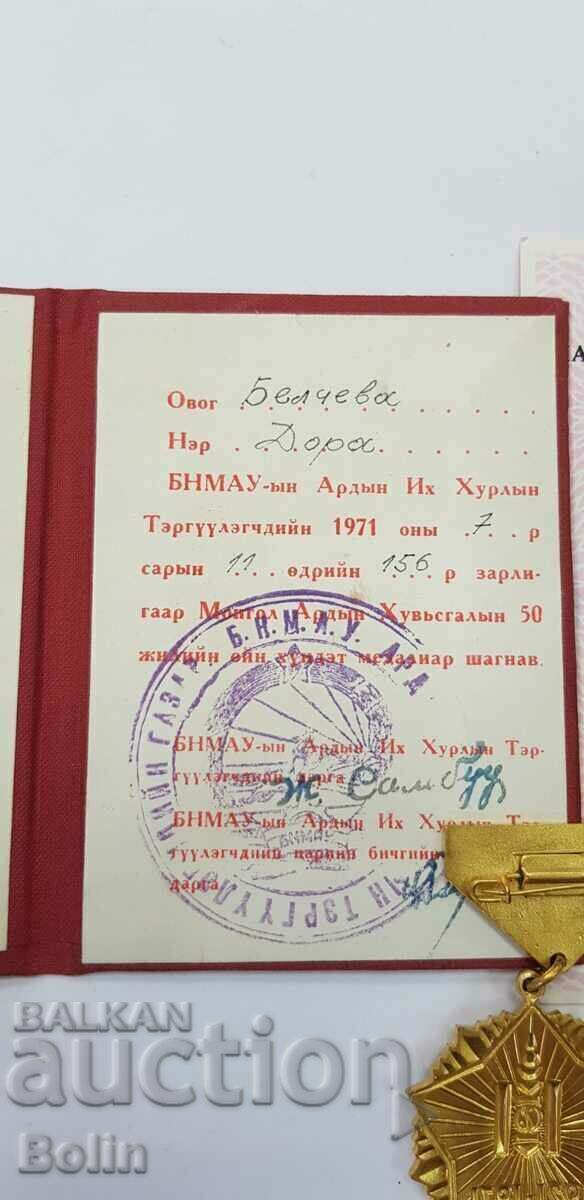 Овог Белчева
Нэр Дора
БНМАУ-ын Ардын Их Хурлын
Тэргүүлэгчдийн 1971 оны 7 р
сарын 11 өдрийн 156 р зарли-
гаар Монгол Ардын Хувьсгалын 50
жилийн ойн хүндэт медалиар шагнав.
БНМАУ-ын Ардын Их Хурлын Тэр-
гүүлэгчдийн дарга Ж. Самбуу
БНМАУ-ын Ардын Их Хурлын Тэр-
гүүлэгчдийн нарийн бичгийн
дарга
Б.Н.М.А.У. АРД
ИЙН ГАЗАР
АН ТЭРГҮҮЛЭГ
БНМАУ
BALKAN
auction
Bolin